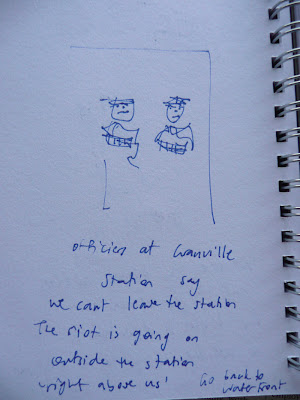 officers at Granville
Station say
we cant leave the station
The riot is going on
outside the station
right above us'
Go back to
waterfront